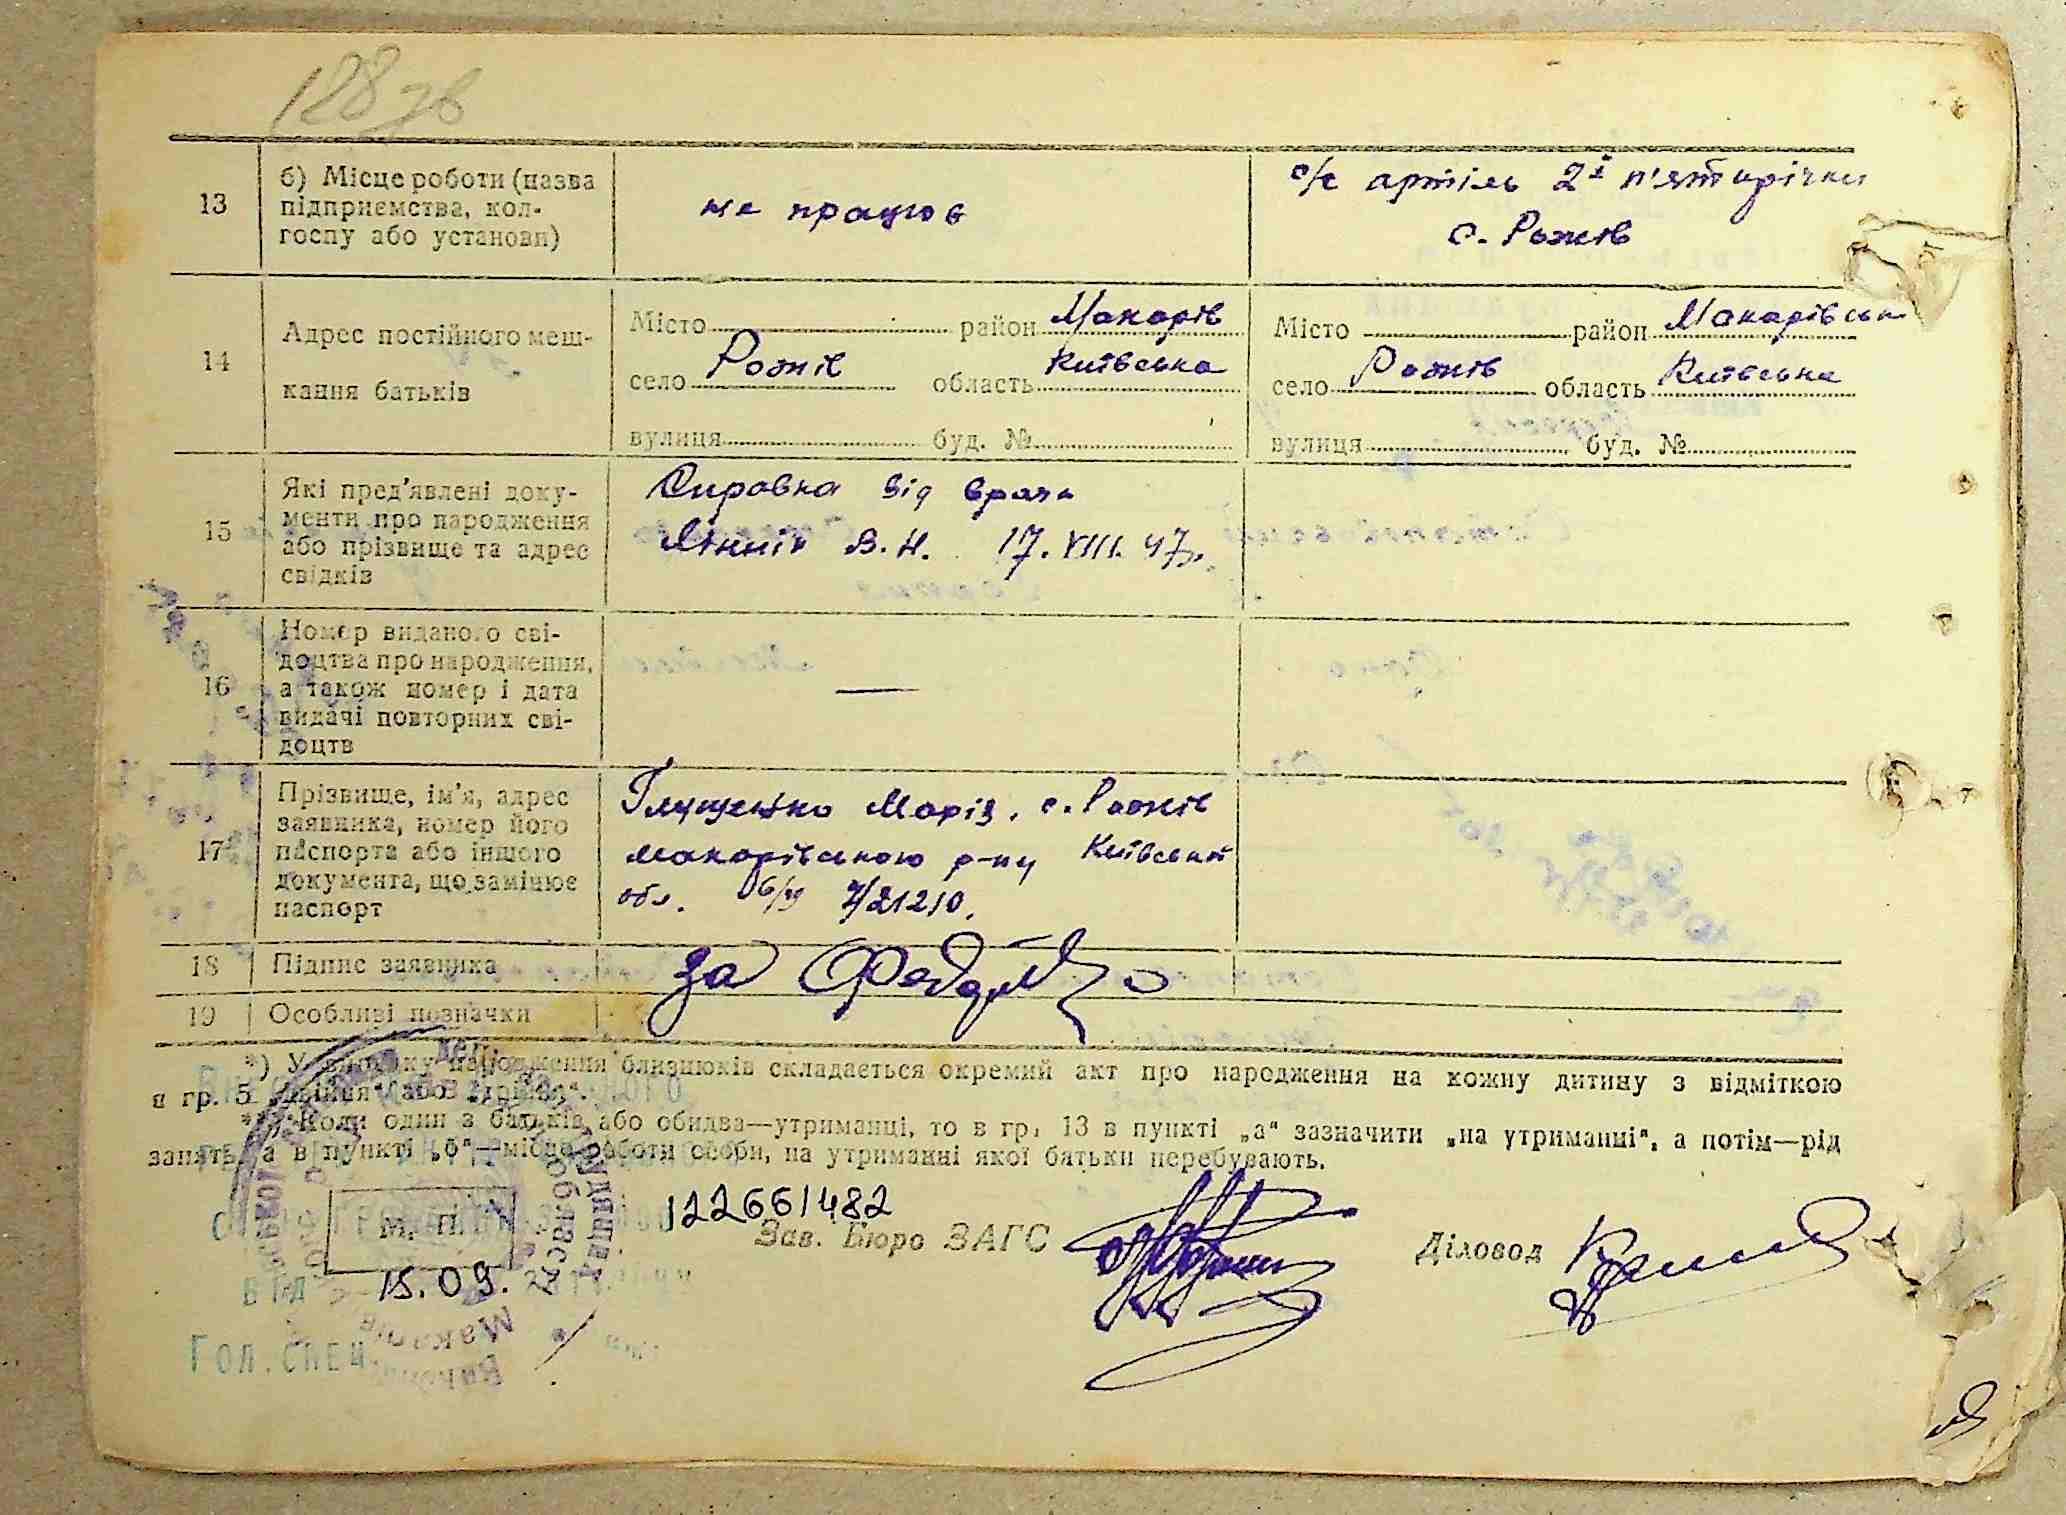 128 зв
13
б) Місце роботи (назва
підприємства, кол-
госпу або установи)
не працює
с/г артіль 2ї п'ятирічки
с. Рожів
14
Адрес постійного меш-
кання батьків
Місто район Макарів
село Рожів область Київська
вулиця буд. №
Місто район Макарівськ
село Рожів область Київська
вулиця буд. №
15
Які пред'явлені доку-
менти про народження
або прізвище та адрес
свідків
Справка від врача
В. Н. 17.VIII.47р.
16
Номер виданого сві-
доцтва про народження,
а також номер і дата
видачі повторних сві-
доцтв
—
17
Прізвище, ім'я, адрес
заявника, номер його
паспорта або іншого
документа, що замінює
паспорт
Глущенко Марія, с. Рожів
Макарівського р-ну Київської
обл. 21210.
18
Підпис заявника
за
19
Особливі позначки
*) У випадку народження близнюків складається окремий акт про народження на кожну дитину з відміткою
в гр. 5 „двійня" або „трійня".
**) Коли один з батьків, або обидва—утриманці, то в гр. 13 в пункті „а" зазначити „на утриманні", а потім—рід
занять, а в пункті „б"—місце роботи особи, на утриманні якої батьки перебувають.
122661482
М. П.
Зав. Бюро ЗАГС
Діловод
від 15.09.
Гол.спец.